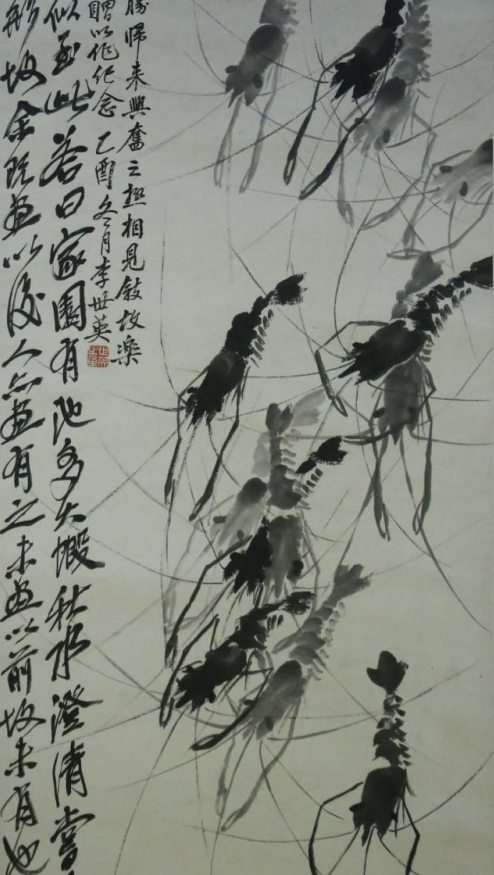 勝歸来興奮之極相見敍故樂
贈以作纪念 乙酉冬月李世英
似至此答曰家園有池多大蝦秋水澄清嘗
形故余既畫以後人亦畫有之未畫以前故未有也